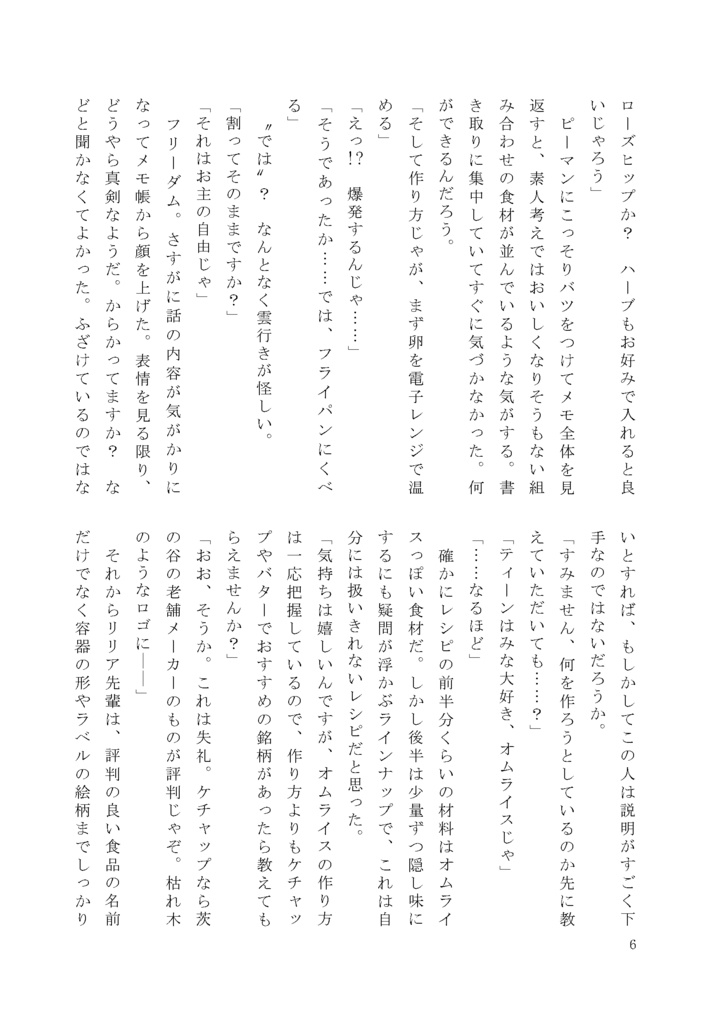 ローズヒップか？　ハーブもお好みで入れると良
いじゃろう」
　ピーマンにこっそりバツをつけてメモ全体を見
返すと、素人考えではおいしくなりそうもない組
み合わせの食材が並んでいるような気がする。書
き取りに集中していてすぐに気づかなかった。何
ができるんだろう。
「そして作り方じゃが、まず卵を電子レンジで温
める」
「えっ!?　爆発するんじゃ……」
「そうであったか……では、フライパンにくべ
る」
　〝では〟？　なんとなく雲行きが怪しい。
「割ってそのままですか？」
「それはお主の自由じゃ」
　フリーダム。さすがに話の内容が気がかりに
なってメモ帳から顔を上げた。表情を見る限り、
どうやら真剣なようだ。からかってますか？　な
どと聞かなくてよかった。ふざけているのではな
いとすれば、もしかしてこの人は説明がすごく下
手なのではないだろうか。
「すみません、何を作ろうとしているのか先に教
えていただいても……？」
「ティーンはみな大好き、オムライスじゃ」
「……なるほど」
　確かにレシピの前半分くらいの材料はオムライ
スっぽい食材だ。しかし後半は少量ずつ隠し味に
するにも疑問が浮かぶラインナップで、これは自
分には扱いきれないレシピだと思った。
「気持ちは嬉しいんですが、オムライスの作り方
は一応把握しているので、作り方よりもケチャッ
プやバターでおすすめの銘柄があったら教えても
らえませんか？」
「おお、そうか。これは失礼。ケチャップなら茨
の谷の老舗メーカーのものが評判じゃぞ。枯れ木
のようなロゴに――」
　それからリリア先輩は、評判の良い食品の名前
だけでなく容器の形やラベルの絵柄までしっかり
6